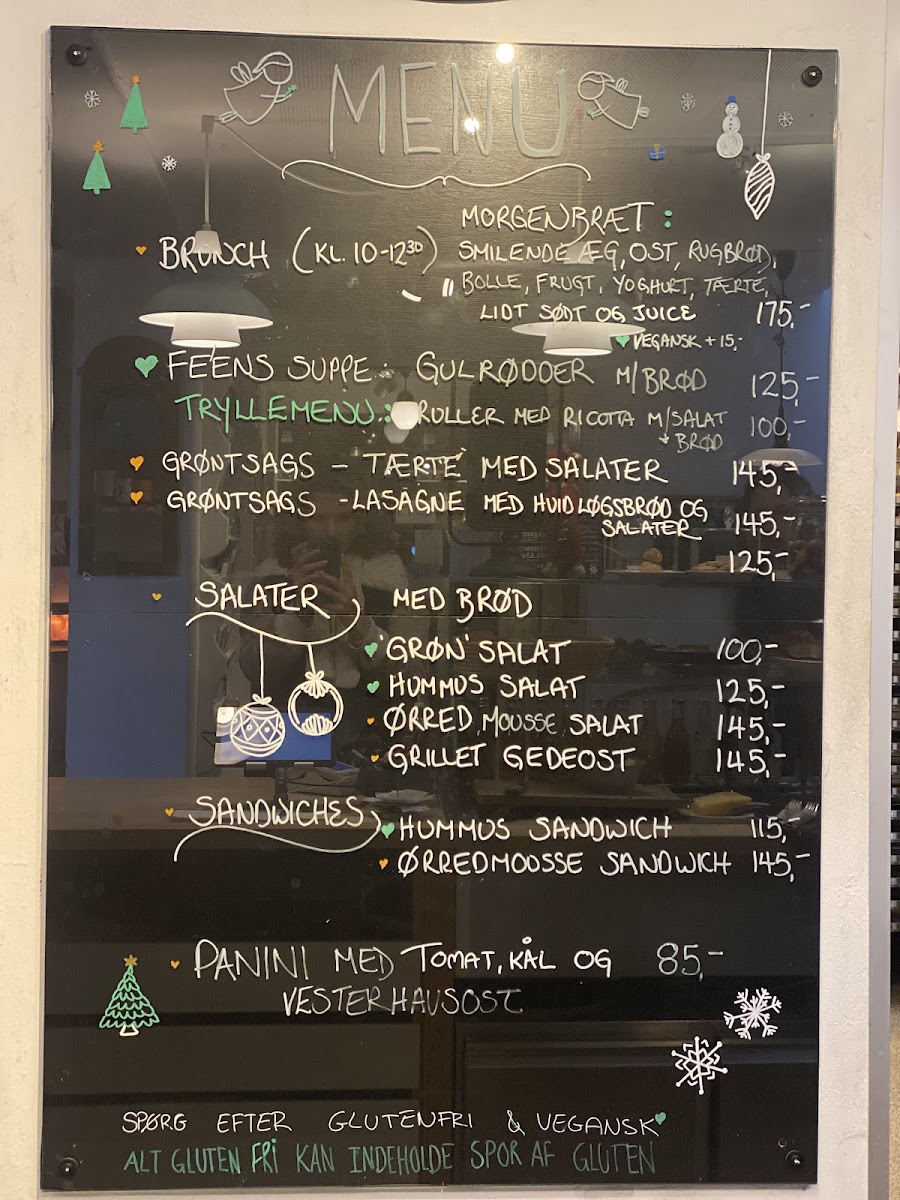 MENU
MORGENBRÆT:
BRUNCH (KL. 10-12³⁰) SMILENDE ÆG, OST, RUGBRØD,
BOLLE, FRUGT, YOGHURT, TÆRTE,
LIDT SØDT OG JUICE 175,-
VEGANSK + 15,-
FEENS SUPPE: GULRØDDER M/BRØD 125,-
TRYLLEMENU: RULLER MED RICOTTA M/SALAT 100,-
+ BRØD
GRØNTSAGS - TÆRTE MED SALATER 145,-
GRØNTSAGS - LASAGNE MED HVIDLØGSBRØD OG
SALATER 145,-
125,-
SALATER MED BRØD
'GRØN' SALAT 100,-
HUMMUS SALAT 125,-
ØRRED,MOUSSE, SALAT 145,-
GRILLET GEDEOST 145,-
SANDWICHES
HUMMUS SANDWICH 115,-
ØRREDMOUSSE SANDWICH 145,-
PANINI MED TOMAT, KÅL OG 85,-
VESTERHAVSOST
SPØRG EFTER GLUTENFRI & VEGANSK
ALT GLUTEN FRI KAN INDEHOLDE SPOR AF GLUTEN